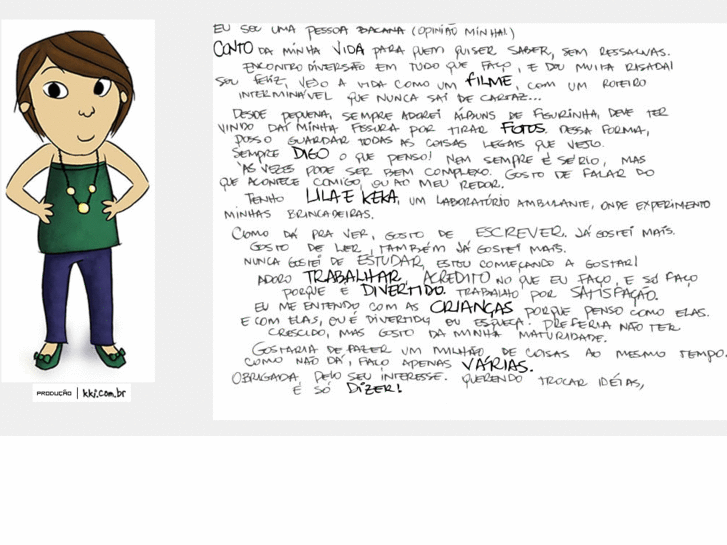 EU SOU UMA PESSOA BACANA (OPINIÃO MINHA!)
CONTO DA MINHA VIDA PARA QUEM QUISER SABER, SEM RESSALVAS.
ENCONTRO DIVERSÃO EM TUDO QUE FAÇO, E DOU MUITA RISADA!
SOU FELIZ, VEJO A VIDA COMO UM FILME, COM UM ROTEIRO
INTERMINÁVEL QUE NUNCA SAI DE CARTAZ...
DESDE PEQUENA, SEMPRE ADOREI ÁLBUNS DE FIGURINHA, DEVE TER
VINDO DAÍ MINHA FISSURA POR TIRAR FOTOS. DESSA FORMA,
POSSO GUARDAR TODAS AS COISAS LEGAIS QUE VEJO.
SEMPRE DIGO O QUE PENSO! NEM SEMPRE É SÉRIO, MAS
ÀS VEZES PODE SER BEM COMPLEXO. GOSTO DE FALAR DO
QUE ACONTECE COMIGO, OU AO MEU REDOR.
TENHO LILA E KEKA, UM LABORATÓRIO AMBULANTE, ONDE EXPERIMENTO
MINHAS BRINCADEIRAS.
COMO DÁ PRA VER, GOSTO DE ESCREVER. JÁ GOSTEI MAIS.
GOSTO DE LER, TAMBÉM JÁ GOSTEI MAIS.
NUNCA GOSTEI DE ESTUDAR, ESTOU COMEÇANDO A GOSTAR!
ADORO TRABALHAR, ACREDITO NO QUE EU FAÇO, E SÓ FAÇO
PORQUE É DIVERTIDO. TRABALHO POR SATISFAÇÃO.
EU ME ENTENDO COM AS CRIANÇAS PORQUE PENSO COMO ELAS.
E COM ELAS, OU É DIVERTIDO, OU ESQUEÇA. PREFERIA NÃO TER
CRESCIDO, MAS GOSTO DA MINHA MATURIDADE.
GOSTARIA DE FAZER UM MILHÃO DE COISAS AO MESMO TEMPO.
COMO NÃO DÁ, FAÇO APENAS VÁRIAS.
OBRIGADA PELO SEU INTERESSE. QUERENDO TROCAR IDÉIAS,
É SÓ DIZER!
PRODUÇÃO | kki.com.br